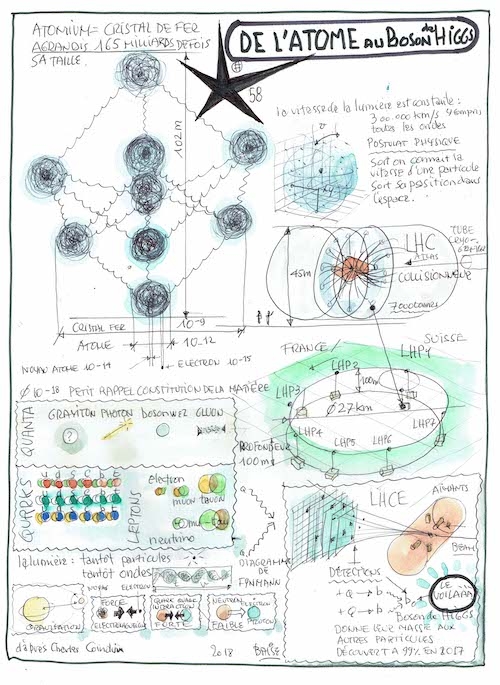 ATOMIUM= CRISTAL DE FER
AGRANDIS 165 MILLIARDS DE FOIS
SA TAILLE.
DE L'ATOME AU BOSON de HIGGS
58
102m
la vitesse de la lumière est constante :
300.000 km/s
toutes les ondes
POSTULAT PHYSIQUE
Soit on connait la
vitesse d'une particule
Soit sa position dans
l'espace.
LHC
ATLAS
COLLISIONNEUR
TUBE
45m
7000 tours
CRISTAL FER 10-9
ATOME 10-12
NOYAU ATOME 10-14
ELECTRON 10-15
Ø 10-18 PETIT RAPPEL CONSTITUTION DE LA MATIÈRE
FRANCE/
SUISSE
LHP1
LHP2
LHP3
LHP4
LHP5
LHP6
LHP7
100m
Ø 27km
PROFONDEUR
100m
QUANTA
GRAVITON PHOTON BOSON WEZ GLUON
?
QUARKS
u d s c b t
LEPTONS
electron
muon tauon
neutrino
la lumière : tantôt particules
tantôt ondes
NOYAU ELECTRON
DIAGRAMME
DE
FEYNMANN
GRAVITATION
FORCE
ELECTROMAGNETIQUE
QUARK QUARK
INTERACTION
FORTE
NEUTRON
FAIBLE
ELECTRON
LHCE
AIMANTS
BEAM
DÉTECTIONS
LE
VOILAAA
Boson de HIGGS
DONNE LEUR MASSE AUX
AUTRES PARTICULES
DÉCOUVERT A 99% EN 2017
d'après Chester
2018